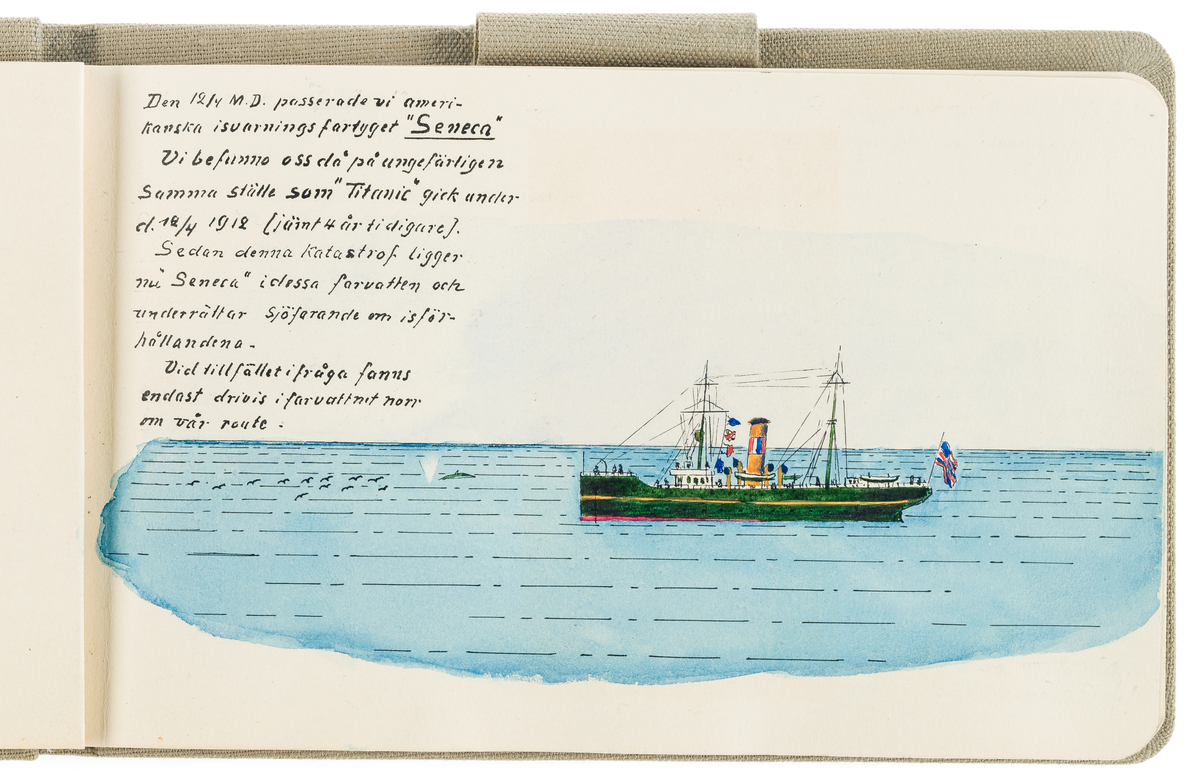 Den 12/4 M.D. passerade vi ameri-
kanska isvarningsfartyget "Seneca"
Vi befunno oss då på ungefärligen
samma ställe som "Titanic" gick under
d. 12/4 1912 [jämt 4 år tidigare].
Sedan denna katastrof ligger
nu "Seneca" i dessa farvatten och
underrättar sjöfarande om isför-
hållandena -
Vid tillfället ifråga fanns
endast drivis i farvattnet norr
om vår route -